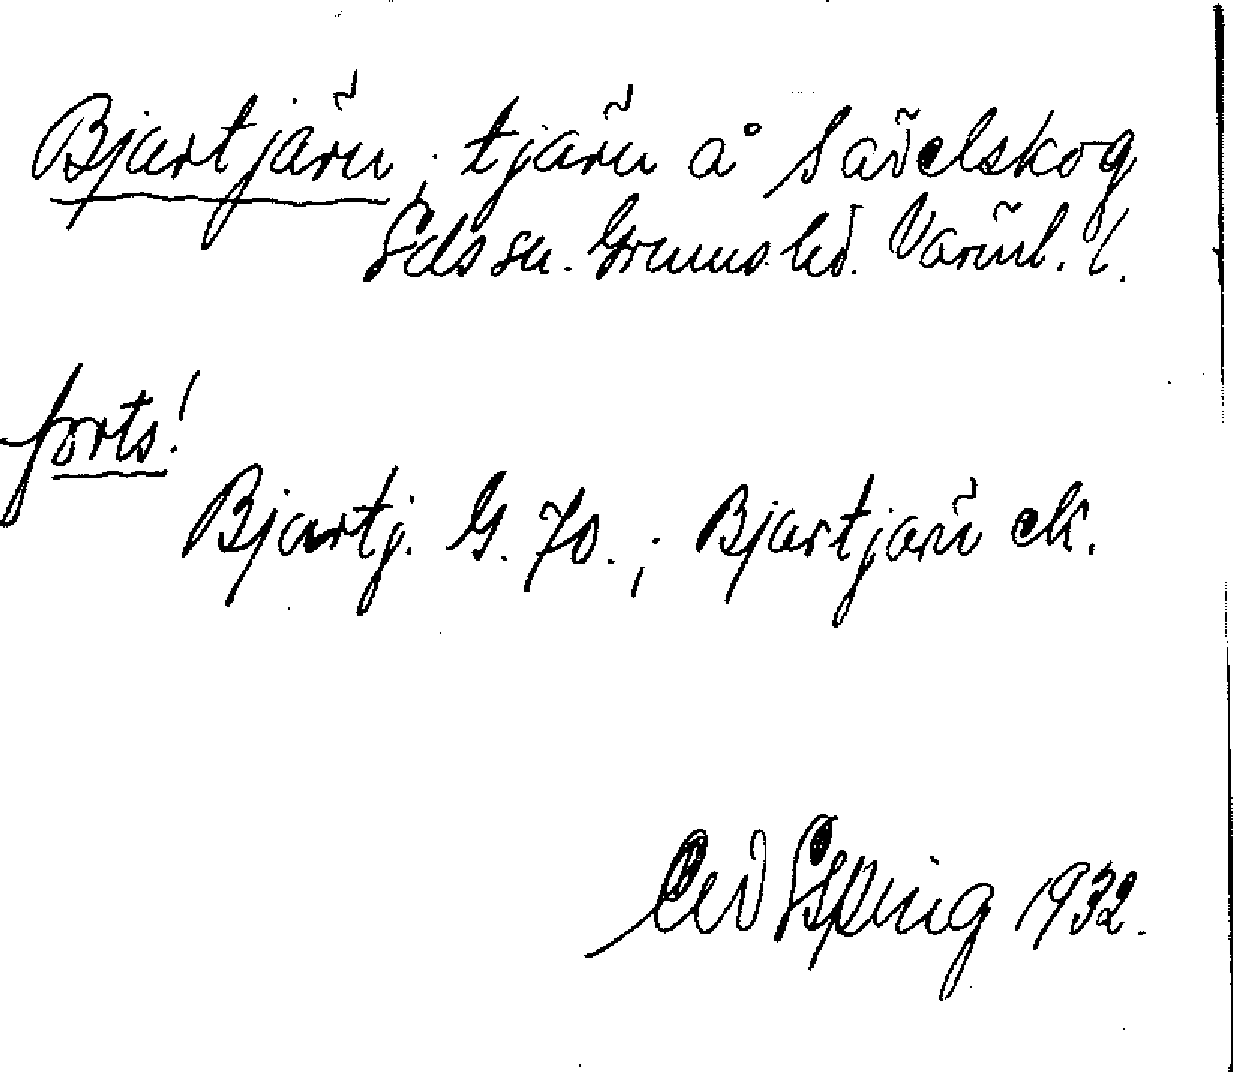 Bjärtjärn, tjärn å Sävelskog
Eds sn. Grums hd. Värml. l.
forts!
Bjärtj. G. 70.; Bjärtjärn ek.
1932.